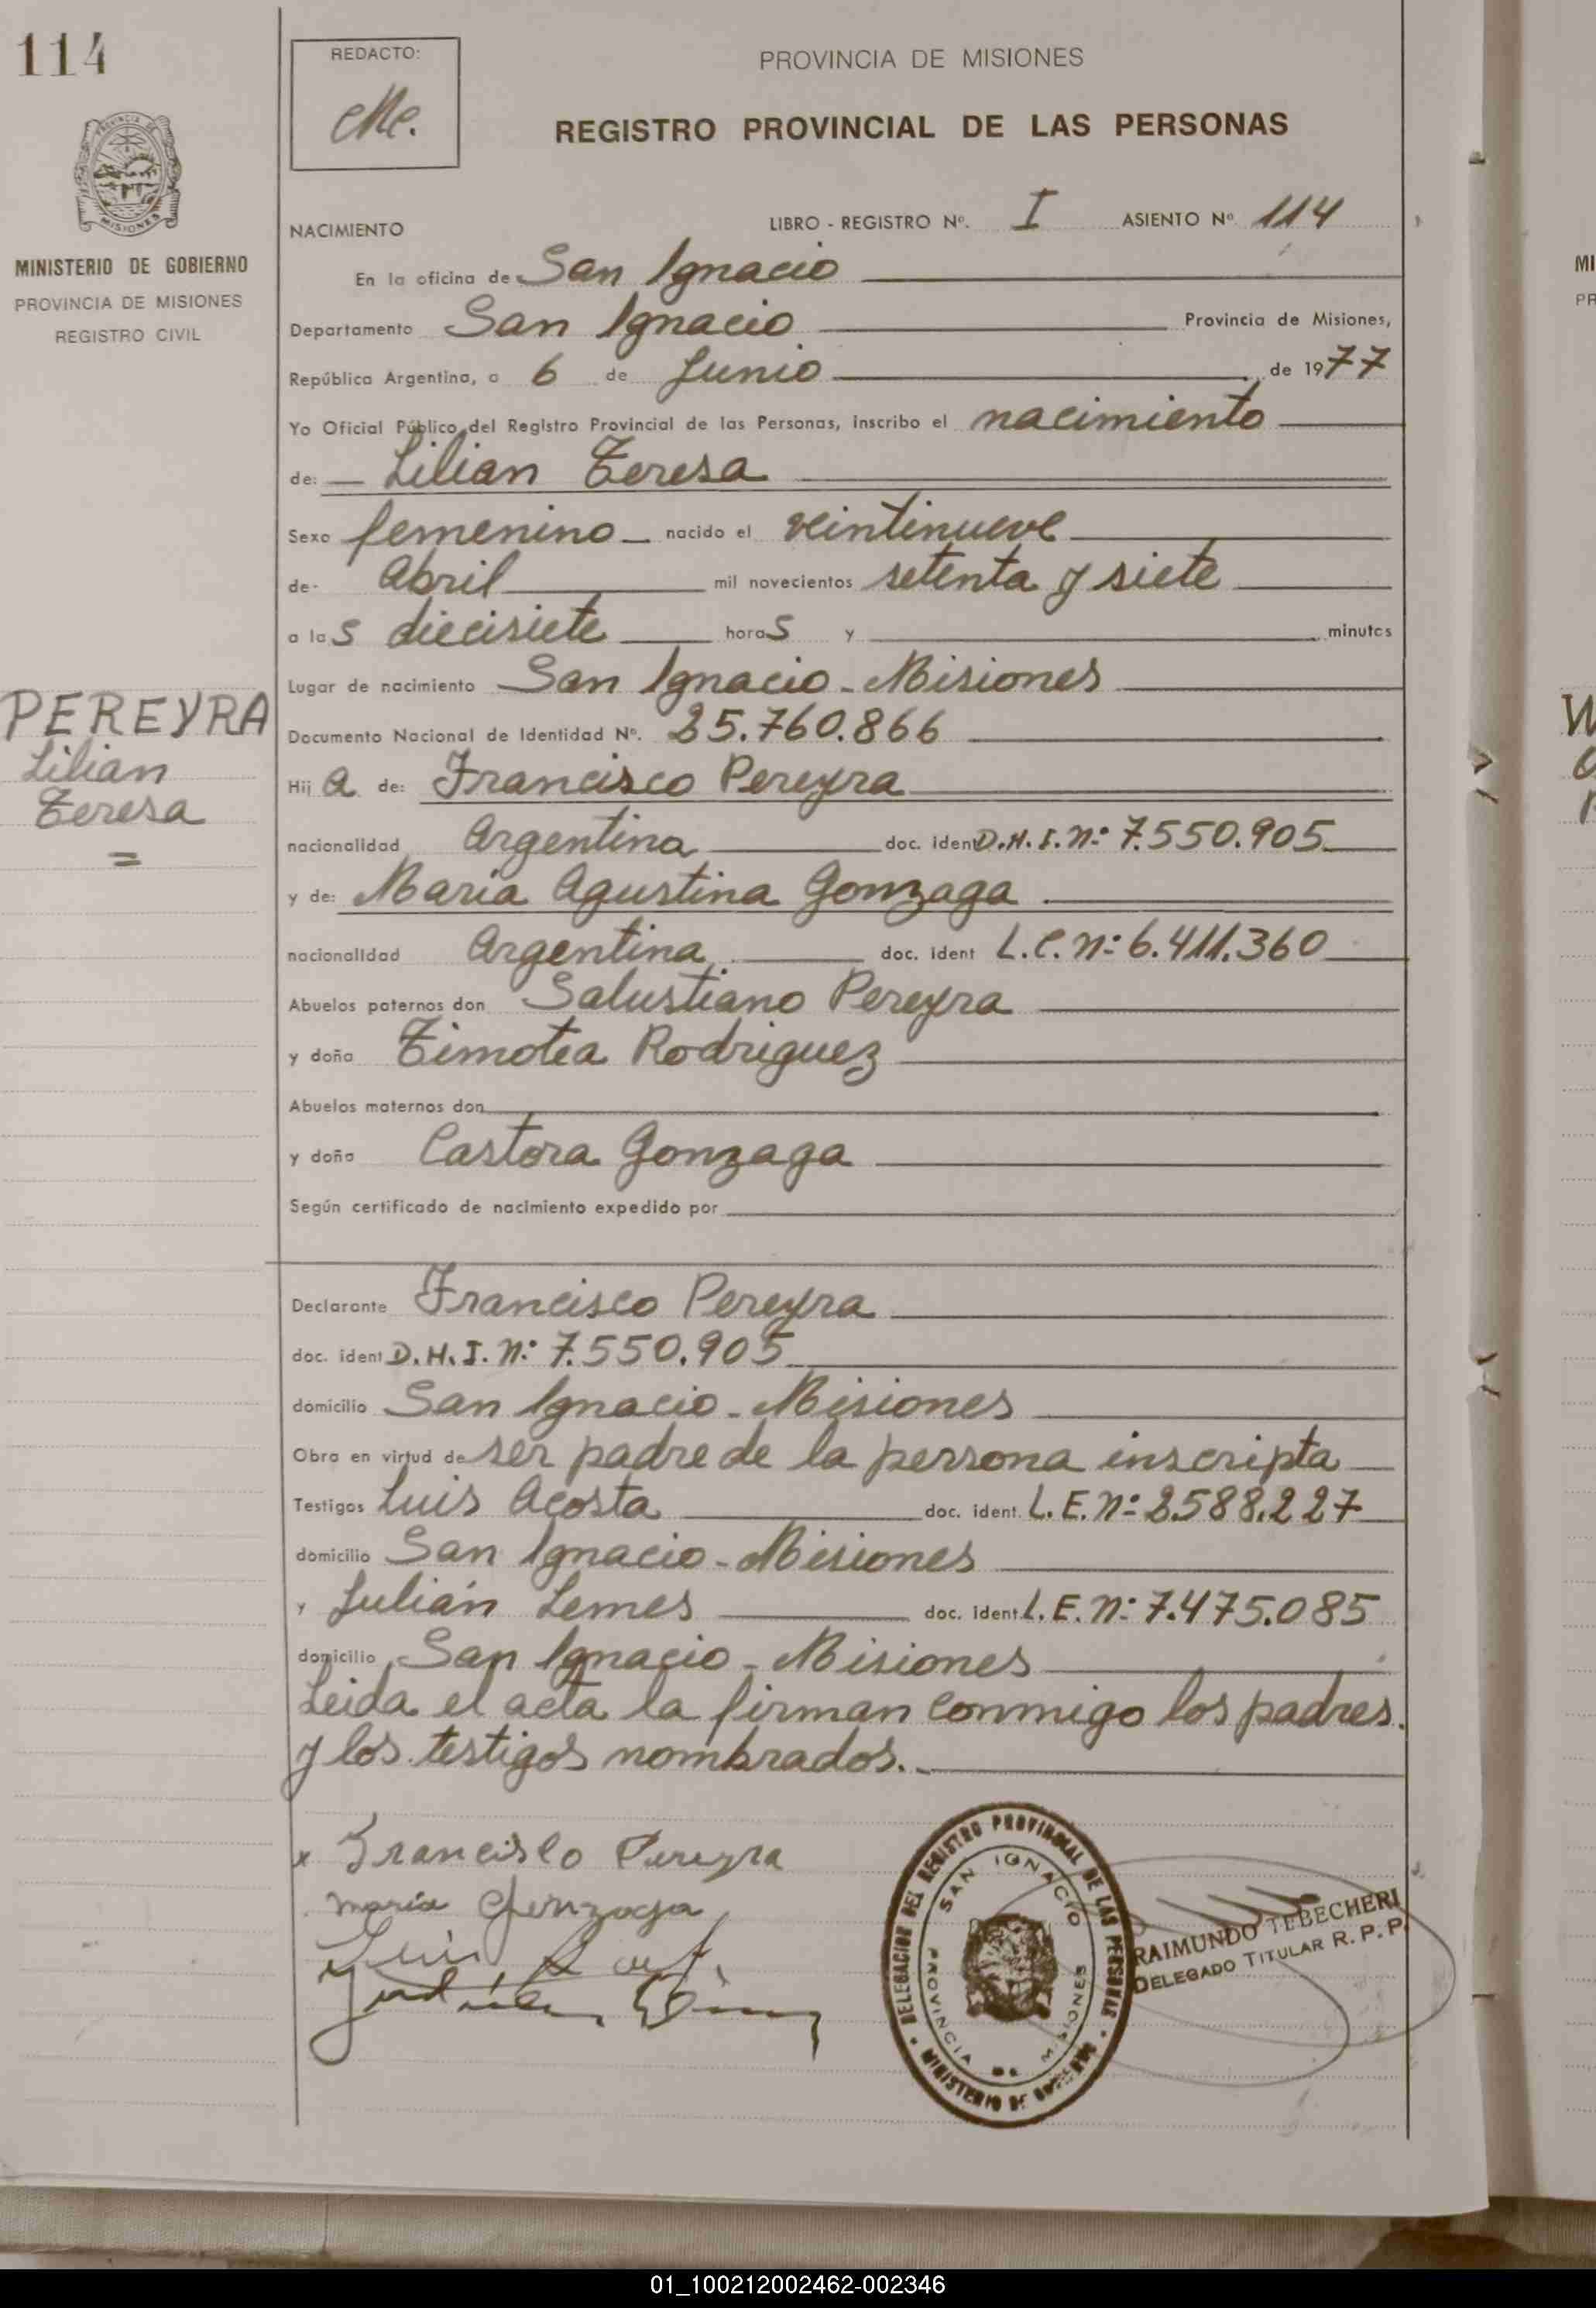 114
REDACTO:
PROVINCIA DE MISIONES
REGISTRO PROVINCIAL DE LAS PERSONAS
NACIMIENTO
LIBRO - REGISTRO Nº. I ASIENTO Nº 114
MINISTERIO DE GOBIERNO
PROVINCIA DE MISIONES
REGISTRO CIVIL
En la oficina de San Ignacio
Departamento San Ignacio Provincia de Misiones,
República Argentina, a 6 de Junio de 1977
Yo Oficial Público del Registro Provincial de las Personas, inscribo el nacimiento
de: Lilian Teresa
Sexo femenino nacido el veintinueve
de Abril mil novecientos setenta y siete
a las diecisiete horas y minutos
Lugar de nacimiento San Ignacio - Misiones
PEREYRA
Lilian
Teresa
=
Documento Nacional de Identidad Nº. 25.760.866
Hija de: Francisco Pereyra
nacionalidad Argentina doc. ident D.N.I. nº 7.550.905
y de: Maria Agustina Gonzaga
nacionalidad Argentina doc. ident L.C. nº 6.411.360
Abuelos paternos don Salustiano Pereyra
y doña Timotea Rodriguez
Abuelos maternos don
y doña Castora Gonzaga
Según certificado de nacimiento expedido por
Declarante Francisco Pereyra
doc. ident D.N.I. nº 7.550.905
domicilio San Ignacio - Misiones
Obra en virtud de ser padre de la persona inscripta
Testigos Luis Acosta doc. ident. L.E. nº 2.588.227
domicilio San Ignacio - Misiones
y Julián Lemes doc. ident. L.E. nº 7.475.085
domicilio San Ignacio - Misiones
Leida el acta la firman conmigo los padres
y los testigos nombrados.
x Francisco Pereyra
maria Gonzaga
Luis
DELEGACION DEL REGISTRO PROVINCIAL DE LAS PERSONAS
SAN IGNACIO
PROVINCIA DE MISIONES
MINISTERIO DE GOBIERNO
RAIMUNDO TEBECHERI
DELEGADO TITULAR R. P. P.
01_100212002462-002346